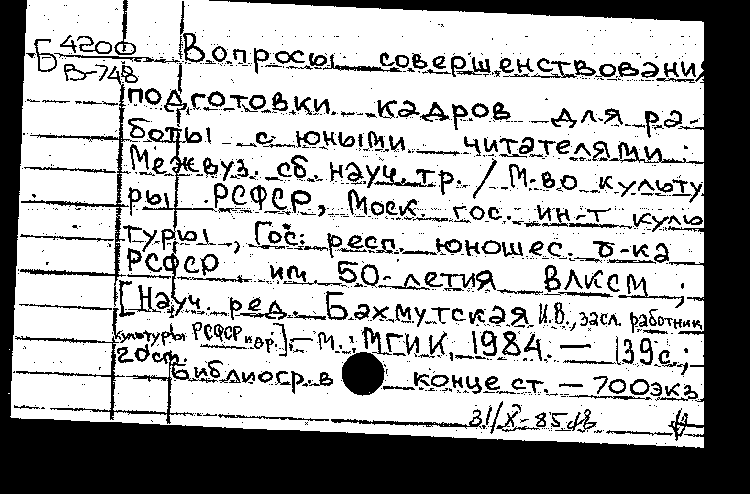 Б 4200
В-748
Вопросы совершенствования
подготовки кадров для ра-
боты с юными читателями:
Межвуз. сб. науч. тр. / М-во культу
ры РСФСР, Моск. гос. ин-т куль
туры, Гос. респ. юношес. б-ка
РСФСР им. 50-летия ВЛКСМ;
[Науч. ред. Бахмутская И.В., засл. работник
культуры РСФСР и др.]. - М.: МГИК, 1984. — 139 с.;
20 см.
Библиогр. в конце ст. — 700 экз
31/X-85